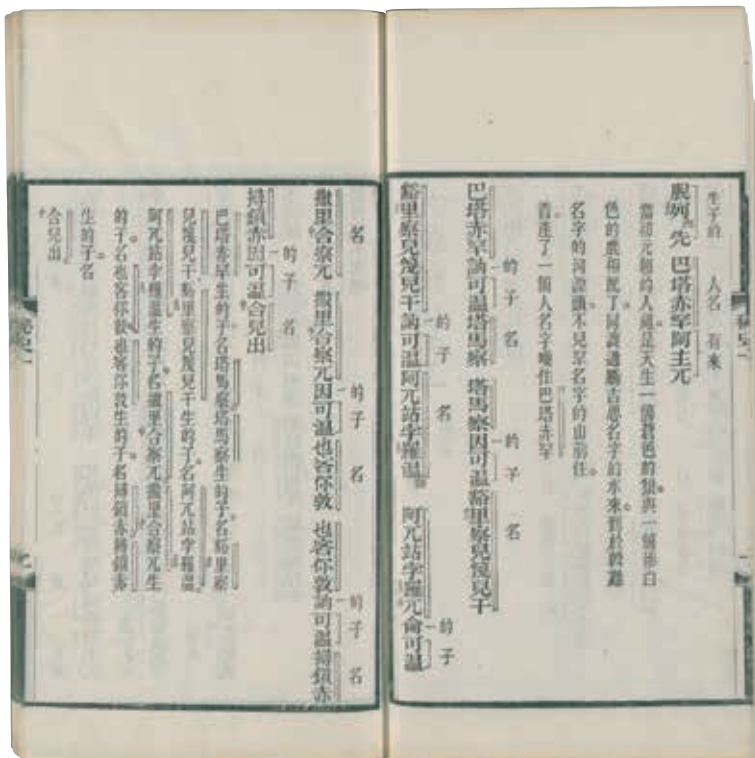 生子的 人名 有來
脫列先 巴塔赤罕阿主兀
當初元朝的人祖是天生一箇蒼色的狼與一箇慘白
色的鹿相配了同渡過騰吉思名字的水來到於斡難
名字的河源頭不兒罕名字的山前住
着產了一箇人名字喚作巴塔赤罕
的子 名 的子 名
巴塔赤罕訥可溫塔馬察 塔馬察因可溫豁里察兒篾兒干
的子 名 的子
豁里察兒篾兒干訥可溫阿兀站孛羅溫 阿兀站孛羅兀侖可溫
名 的子 名 的子 名
撒里合察兀 撒里合察兀因可溫也客你敦 也客你敦訥可溫撏鎖赤
的子 名
撏鎖赤因可溫合兒出
巴塔赤罕生的子名塔馬察塔馬察生的子名豁里察
兒篾兒干豁里察兒篾兒干生的子名阿兀站孛羅溫
阿兀站孛羅溫生的子名撒里合察兀撒里合察兀生
的子名也客你敦也客你敦生的子名撏鎖赤撏鎖赤
生的子名
合兒出
秘史一